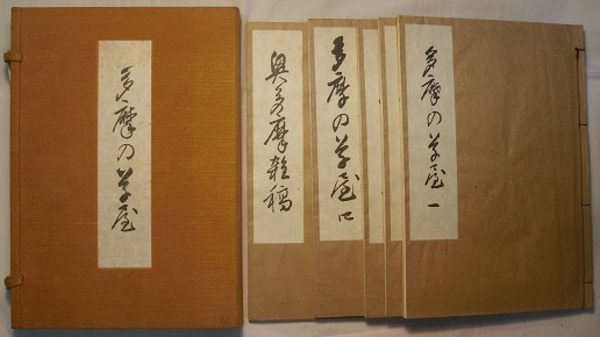 多摩の草屋
奥多摩雑稿
多摩の草屋 四
多摩の草屋 一